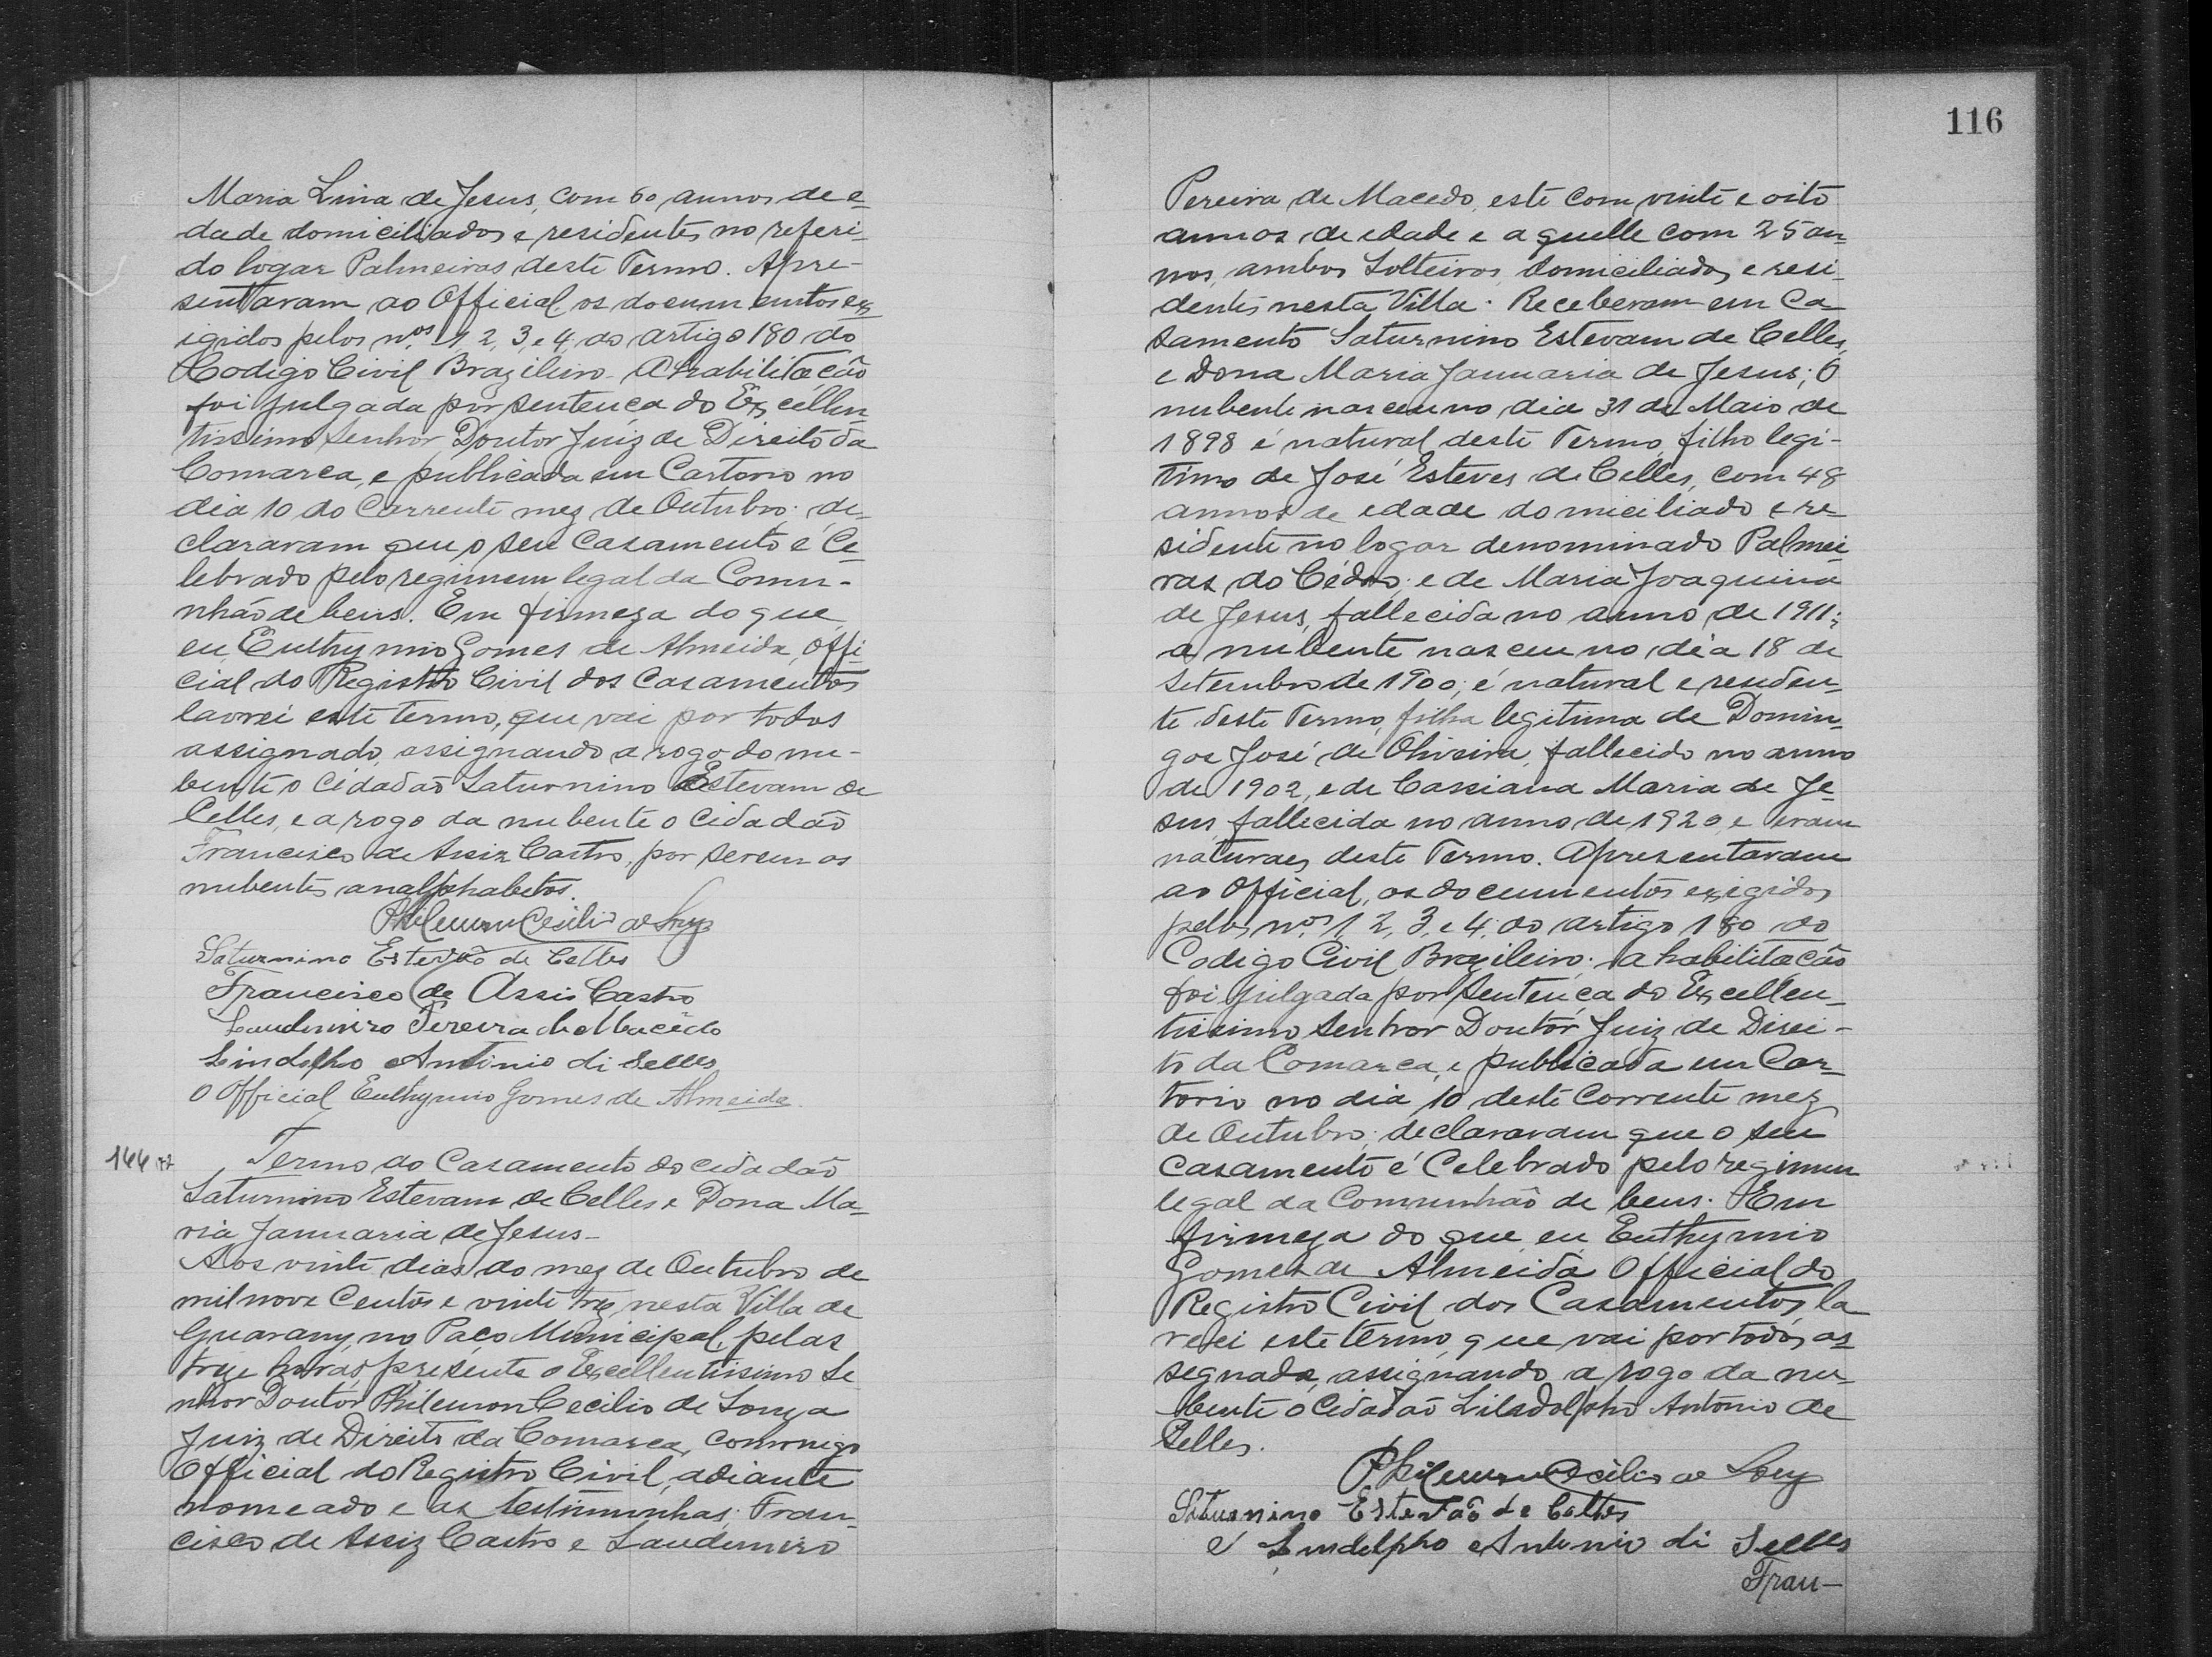 Maria Lina de Jesus, com 60 annos de e-
dade domiciliados e residentes no referi-
do logar Palmeiras deste Termo. Apre-
sentaram ao Official os documentos ex-
igidos pelos nos. 1, 2, 3, e 4, do artigo 180 do
Codigo Civil Brazileiro. A habilitação
foi julgada por sentença do Excellen-
tissimo Senhor Doutor Juiz de Direito da
Comarca, e publicada em Cartorio no
dia 10 do Corrente mez de Outubro: de-
claravam que o seu Casamento é Ce-
lebrado pelo regimem legal da Comu-
nhão de bens. Em firmeza do que
eu Euthymio Gomes de Almeida, Offi-
cial do Registro Civil dos Casamentos
lavrei este termo, que vai por todos
assignado, assignando a rogo do nu-
bente o Cidadão Saturnino Estevam de
Celles, e a rogo da nubente o Cidadão
Francisco de Assiz Castro, por serem os
nubentes analphabetos.
Philemon Cecilio de Souza
Saturnino Estevão de Celles
Francisco de Assis Castro
Laudemiro Pereira de Macêdo
Lindolpho Antonio di Selles
O Official Euthymio Gomes de Almeida.
144
Termo do Casamento do cidadão
Saturnino Estevam de Celles e Dona Ma-
ria Januaria de Jesus-
Aos vinte dias do mez de Outubro de
mil nove Centos e vinte trez, nesta Villa de
Guarany, no Paço Municipal, pelas
treze horas, presente o Excellentissimo Se
nhor Doutor Philemon Cecilio de Souza
Juiz de Direito da Comarca, commigo
Official do Registro Civil, adiante
nomeado e as testimunhas: Fran-
cisco de Assiz Castro e Laudemiro
116
Pereira de Macedo, este com vinte e oito
annos de edade e aquelle com 25 an-
nos, ambos Solteiros, domiciliados e resi-
dentes nesta Villa. Receberam em Ca-
samento Saturnino Estevam de Celles,
e Dona Maria Januaria de Jesus; O
nubente nasceu no dia 31 de Maio de
1898 é natural deste Termo, filho legi-
timo de José Esteves de Celles, com 48
annos de edade domiciliado e re-
sidente no logar denominado Palmei-
ras do Cédro; e de Maria Joaquina
de Jesus, fallecida no anno de 1911;
a nubente nasceu no dia 18 de
Setembro de 1900; é natural e residen-
te deste Termo, filha legitima de Domin-
gos José de Oliveira, fallecido no anno
de 1902, e de Cassiana Maria de Je-
sus, fallecida no anno de 1920, e eram
naturaes deste Termo. Apresentaram
ao Official, os documentos exigidos
pelos nos. 1, 2, 3, e 4, do artigo 180 do
Codigo Civil Brazileiro; a habilitação
foi julgada por Sentença do Excellen-
tissimo Senhor Doutor Juiz de Direi-
to da Comarca, e publicada em Car-
torio no dia 10 deste Corrente mez
de Outubro; declaravam que o seu
Casamento é Celebrado pelo regimen
legal da Comunhão de bens. Em
firmeza do que, eu Euthymio
Gomes de Almeida Official do
Registro Civil dos Casamentos, la
vrei este termo, que vai por todos as-
segnado, assignando a rogo da nu-
bente o Cidadão Liladolpho Antonio de
Selles.
Philemon Cecilio de Souza
Saturnino Estevão de Celles
Lindolpho Antonio di Selles
Fran-